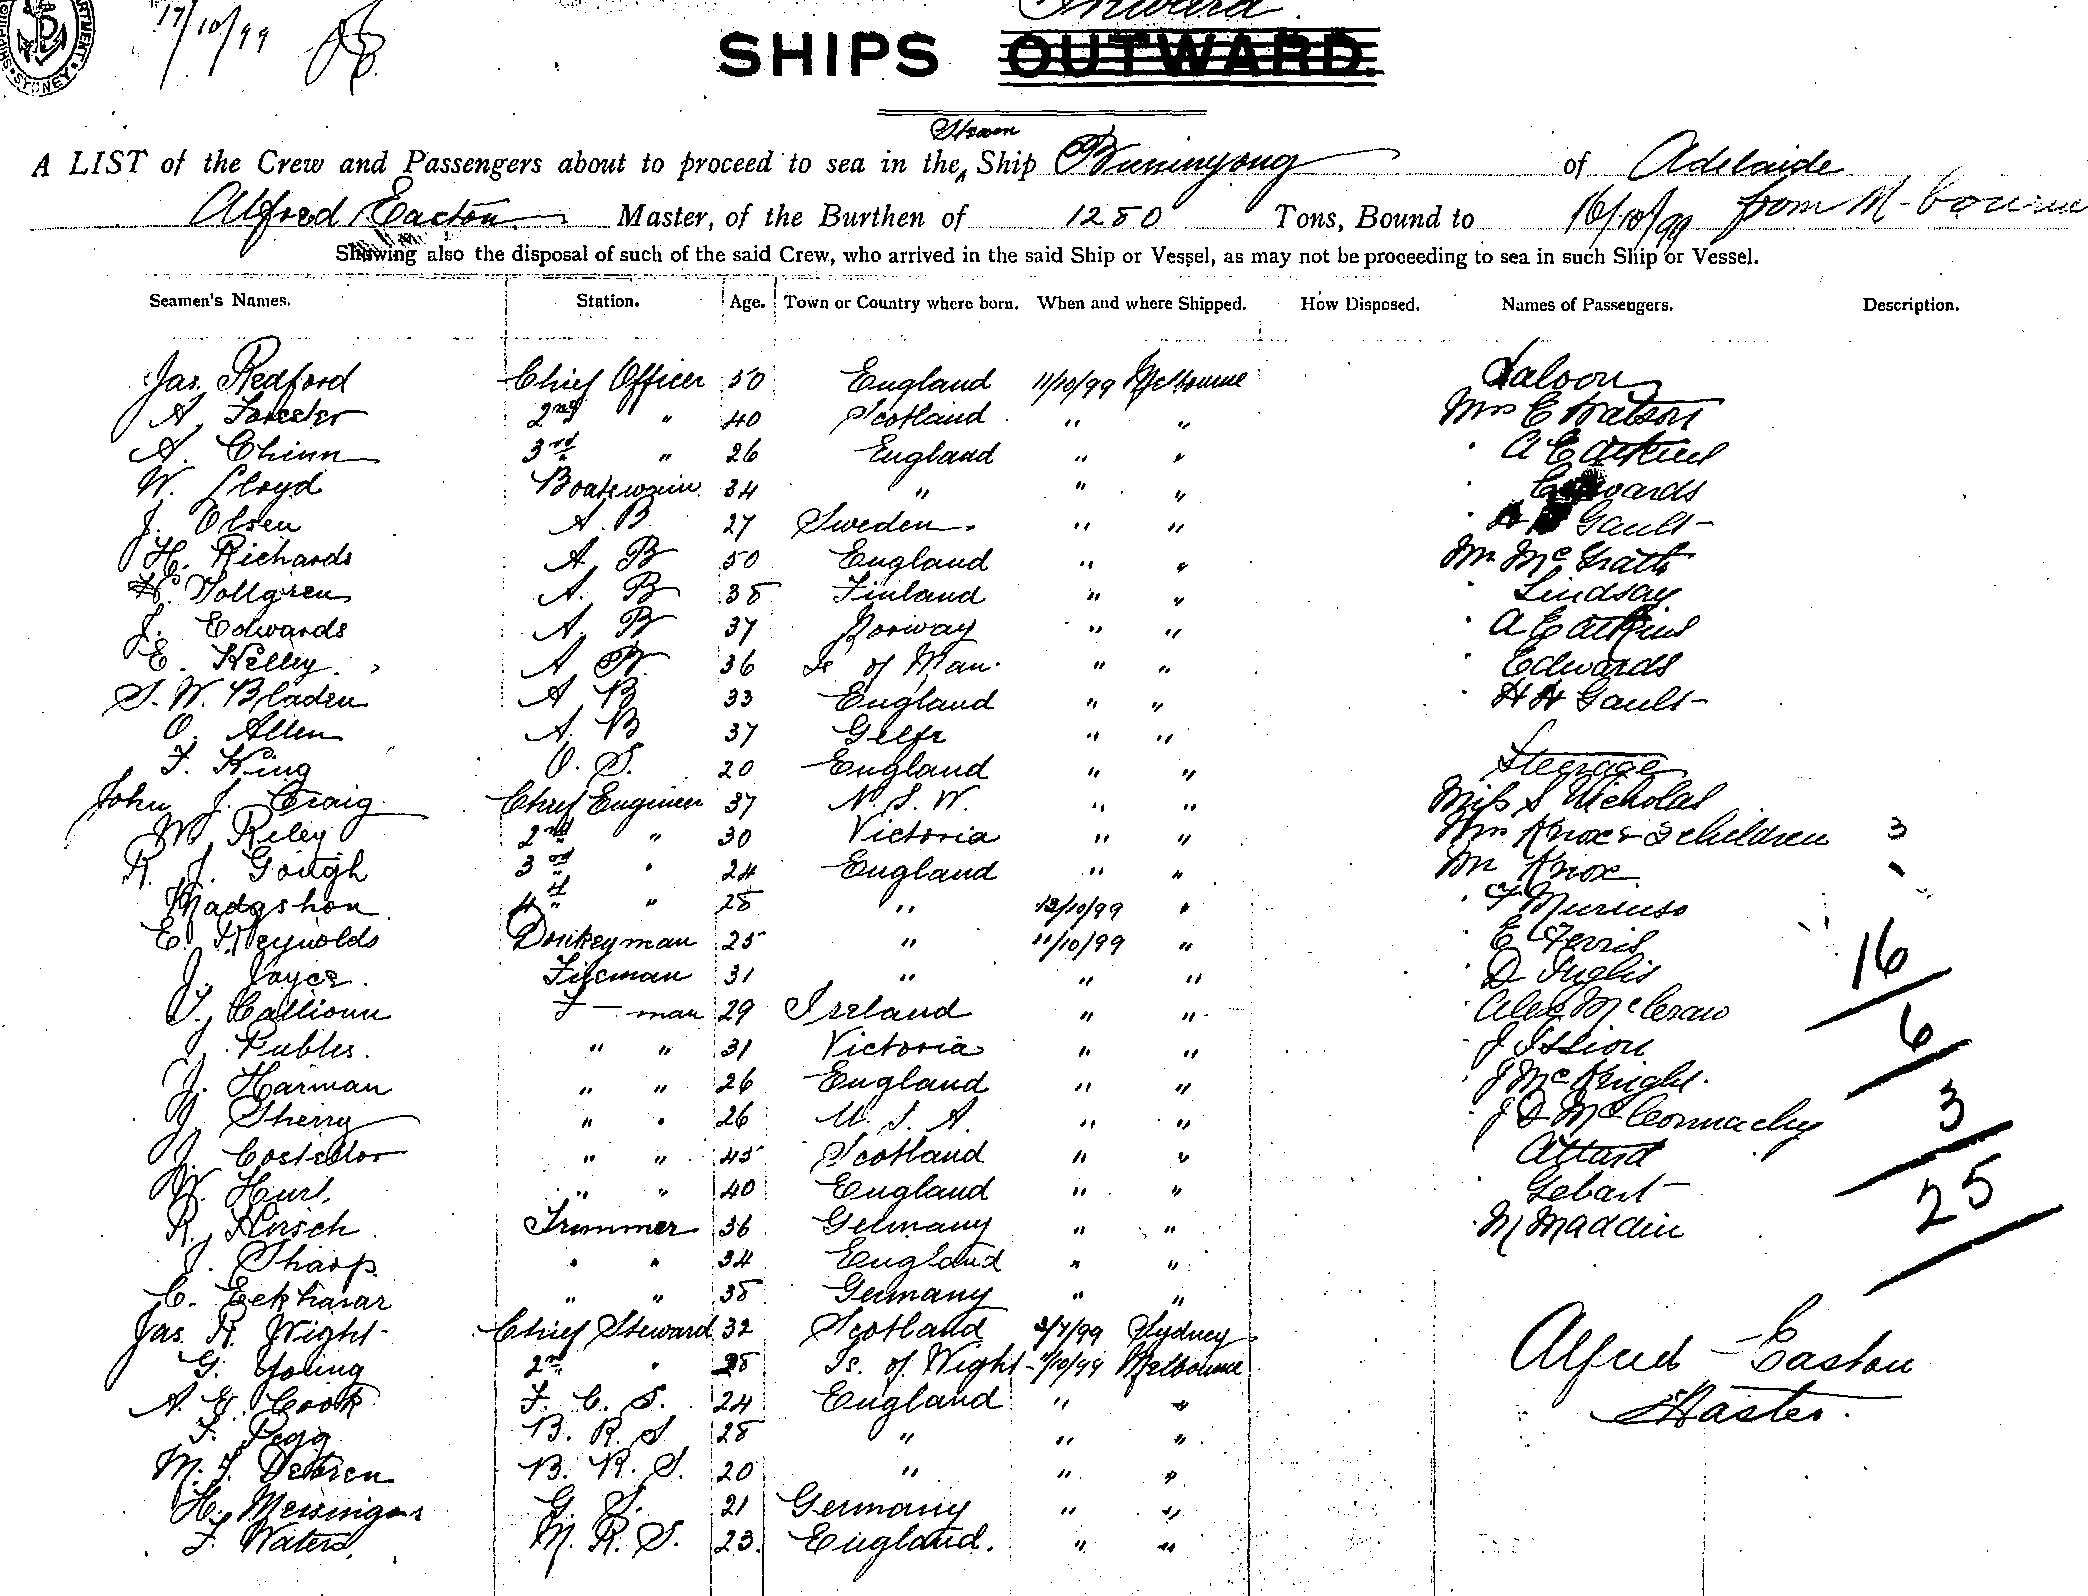 17/10/99
Inward
SHIPS OUTWARD.
Steam
A LIST of the Crew and Passengers about to proceed to sea in the Ship Buninyong of Adelaide
Alfred Easton Master, of the Burthen of 1280 Tons, Bound to 16/10/99 from M-bourne
Showing also the disposal of such of the said Crew, who arrived in the said Ship or Vessel, as may not be proceeding to sea in such Ship or Vessel.
Seamen's Names. Station. Age. Town or Country where born. When and where Shipped. How Disposed. Names of Passengers. Description.
Jas. Redford Chief Officer 50 England 11/10/99 Melbourne Saloon
A. Forester 2nd " 40 Scotland " " Mrs E Watson
A. Chinn 3rd " 26 England " " " A E Atkins
W. Lloyd Boatswain 34 " " " " Edwards
J. Olsen A. B 27 Sweden. " " " Gault
H. Richards A. B 50 England " " Mr McGrath
Tollgren A. B 38 Finland " " " Lindsay
J. Edwards A. B 37 Norway " " " A E Atkins
E. Kelley. A B 36 Is of Man. " " " Edwards
S. W. Bladen A B 33 England " " " H H Gault
O. Allen A. B 37 " "
F. King O. S. 20 England " " Steerage
John J. Craig Chief Engineer 37 N. S. W. " " Miss S Nicholas
W. Riley 2nd " 30 Victoria " " Mrs Knox & 3 children 3
R. J. Gough 3rd " 24 England " " Mr Knox
Madgshon 4th " 28 " 12/10/99 " "
E. Reynolds Donkeyman 25 " 11/10/99 " " E Ferris
J. Joyce. Fireman 31 " " " " D Inglis 16
T. Calhoun F — man 29 Ireland " " " Alex McCraw
J. " " 31 Victoria " " " J 6
J. Harman " " 26 England " " " J McKnight.
J. Sherry " " 26 U. S. A. " " " J D McConnachy 3
J. Costellor " " 45 Scotland " " Attard
W. Hurt. " " 40 England " " Gebart 25
R. Hirsch Trimmer 36 Germany " " " M Maddin
J. Sharp " " 34 England " "
C. Eekhasar " " 38 Germany " "
Jas. R. Wight Chief Steward 32 Scotland 3/7/99 Sydney Alfred Easton
G. Young 2nd " 28 Is. of Wight 11/10/99 Melbourne
A. G. Cook F. C. S. 24 England " " Master.
F. Pegg B. R. S 28 " " "
M. J. B. R. S. 20 " " "
H. Messingers G. S. 21 Germany " "
F. Waters. M. R. S. 23. England. " "